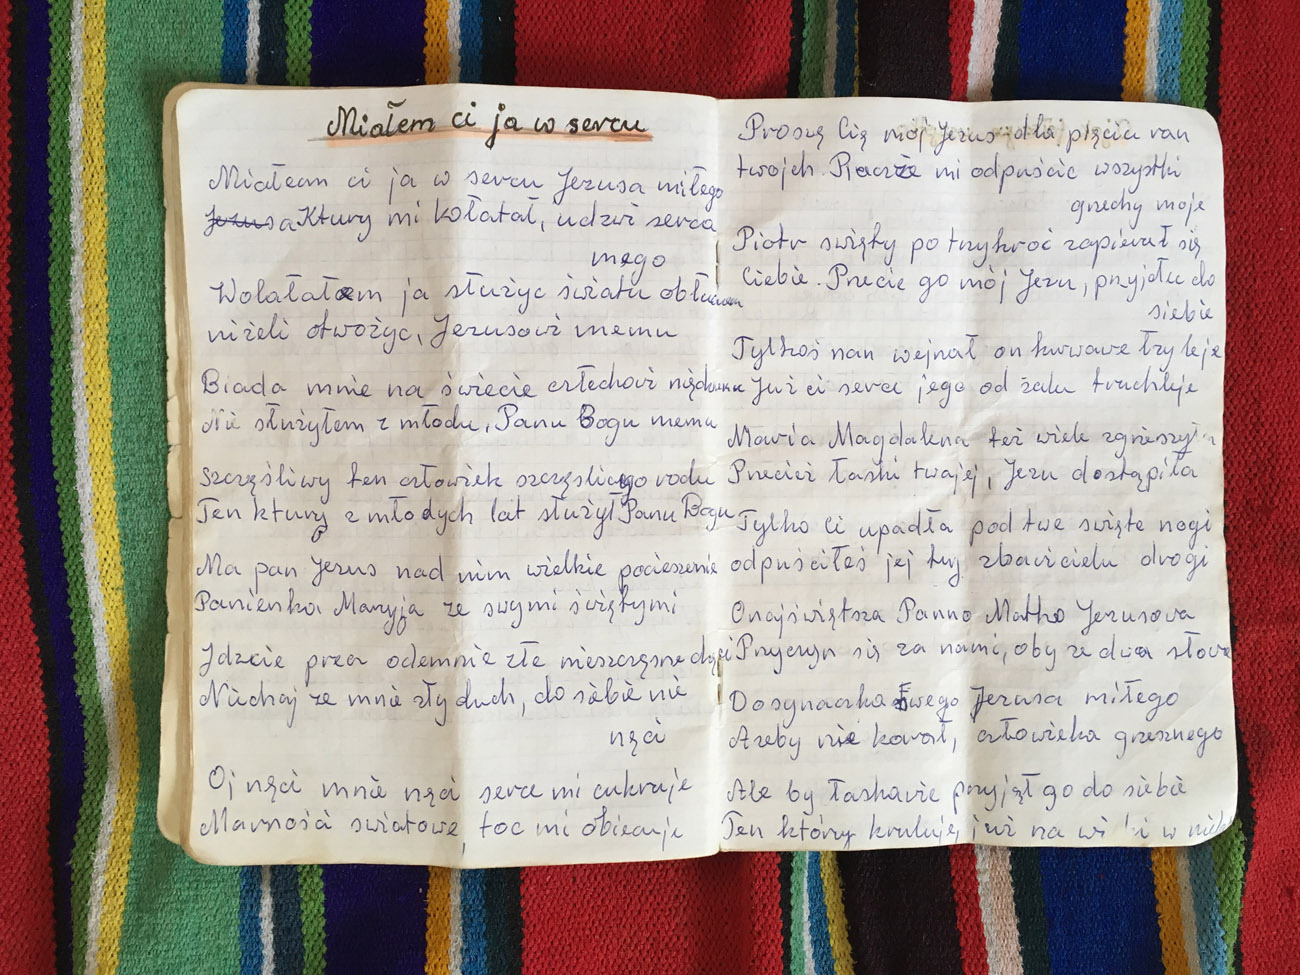 Miałem ci ja w sercu
Miałem ci ja w sercu Jezusa miłego
Jezusa Ktury mi kołatał, udzwi serca
mego
Wolałałem ja służyc światu
niżeli otwożyc, Jezusowi memu
Biada mnie na świecie człechowi
Nie służyłem z młodu, Panu Bogu memu
Szczęśliwy ten człowiek szczęsliwygo rodu
Ten ktury z młodych lat służył Panu Bogu
Ma pan Jezus nad nim wielkie pocieszenie
Panienka Maryja ze swymi świętymi
Jdzcie precz odemnie złe nieszczęsne
Niechaj ze mnie zły duch, do siebie nie
nęci
Oj nęci mnie nęci serce mi cukruje
Marności swiatowe, toc mi obiecuje
Proszę Cię mój Jezus dla pięciu ran
twojch. Racze mi odpuścic wszystki
grzechy moje
Piotr swięty po trzykroć zapierał się
Ciebie. Precie go mój Jezu, przyjdłu do
siebie
Tylkoś nan wejnał on krwawe łzy leje
Już ci serce jego od żalu truchleje
Maria Magdalena też wiele zgrzeszyła
Precież łaski twajej, Jezu dostąpiła
Tylko Ci upadła pod twe swięte nogi
odpusciłeś jej ty zbawicielu drogi
Onajświętsza Panno Matko Jezusowa
Przyczyn się za nami, oby ze dwa słowa
Dosynaczka Swego Jezusa miłego
Azeby nie karał, człowieka grzesznego
Ale by łaskawie przyjął go do siebie
Ten który kruluje, już na wieki w niebie